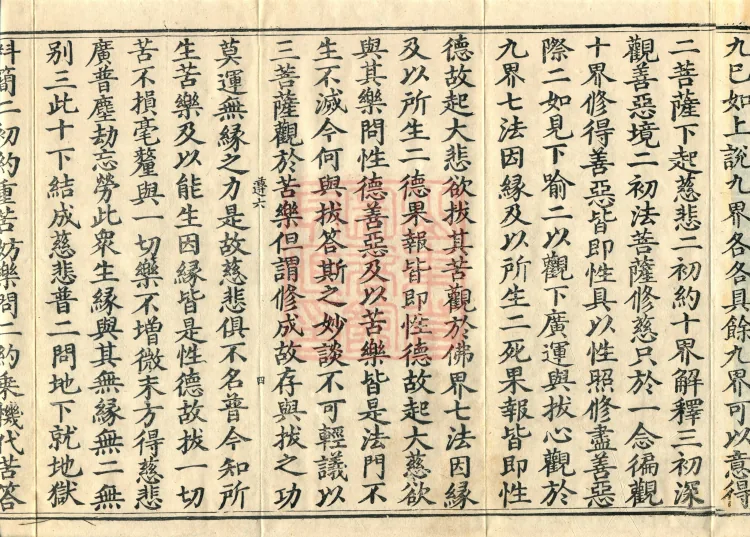 九已如上說九界各各具餘九界可以意得
二菩薩下起慈悲二初約十界解釋三初深
觀善惡境二初法菩薩修慈只於一念徧觀
十界修得善惡皆即性具以性照修盡善惡
際二如見下喻二以觀下廣運與拔心觀於
九界七法因緣及以所生二死果報皆即性
德故起大悲欲拔其苦觀於佛界七法因緣
及以所生二德果報皆即性德故起大慈欲
與其樂問性德善惡及以苦樂皆是法門不
生不滅今何與拔答斯之妙談不可輕議以
三菩薩觀於苦樂但謂修成故存與拔之功
蓮六 四
莫運無緣之力是故慈悲俱不名普今知所
生苦樂及以能生因緣皆是性德故拔一切
苦不損毫釐與一切樂不增微末方得慈悲
廣普塵劫忘勞此衆生緣與其無緣無二無
別三此十下結成慈悲普二問地下就地獄
料簡二初約重苦妨樂問二約乘機代苦答